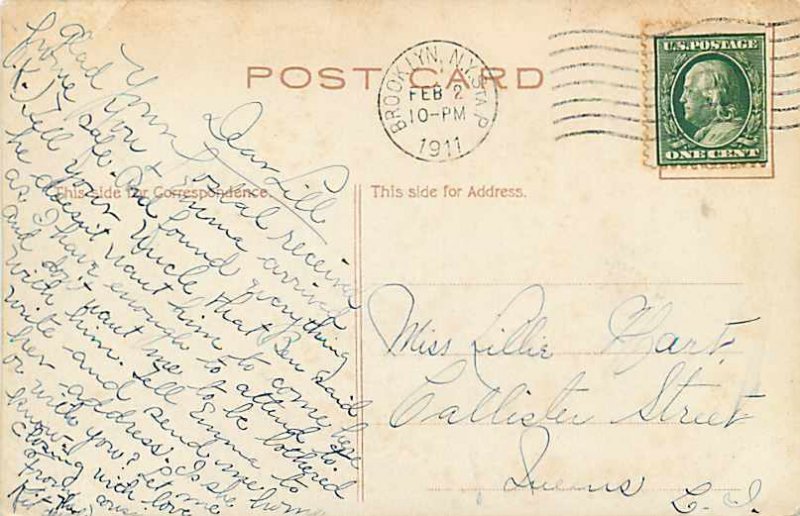 POST CARD
BROOKLYN, N.Y. STA. P
FEB 2
10-PM
1911
U.S. POSTAGE
ONE CENT
This side for Correspondence.
This side for Address.
Dear Lill
Your postal received
glad you & Emma arrived
home safe and found everything
O.K. Tell your Uncle that Ben said
he doesn't want him to come here
as I have enough to attend to
and don't want me to be bothered
with him. Tell Emma to
write and send me
her address. Is she home
or with you? Let me
know.
Closing with love
from
Miss Lillie Hart.
Callister Street
Queens
L. I.